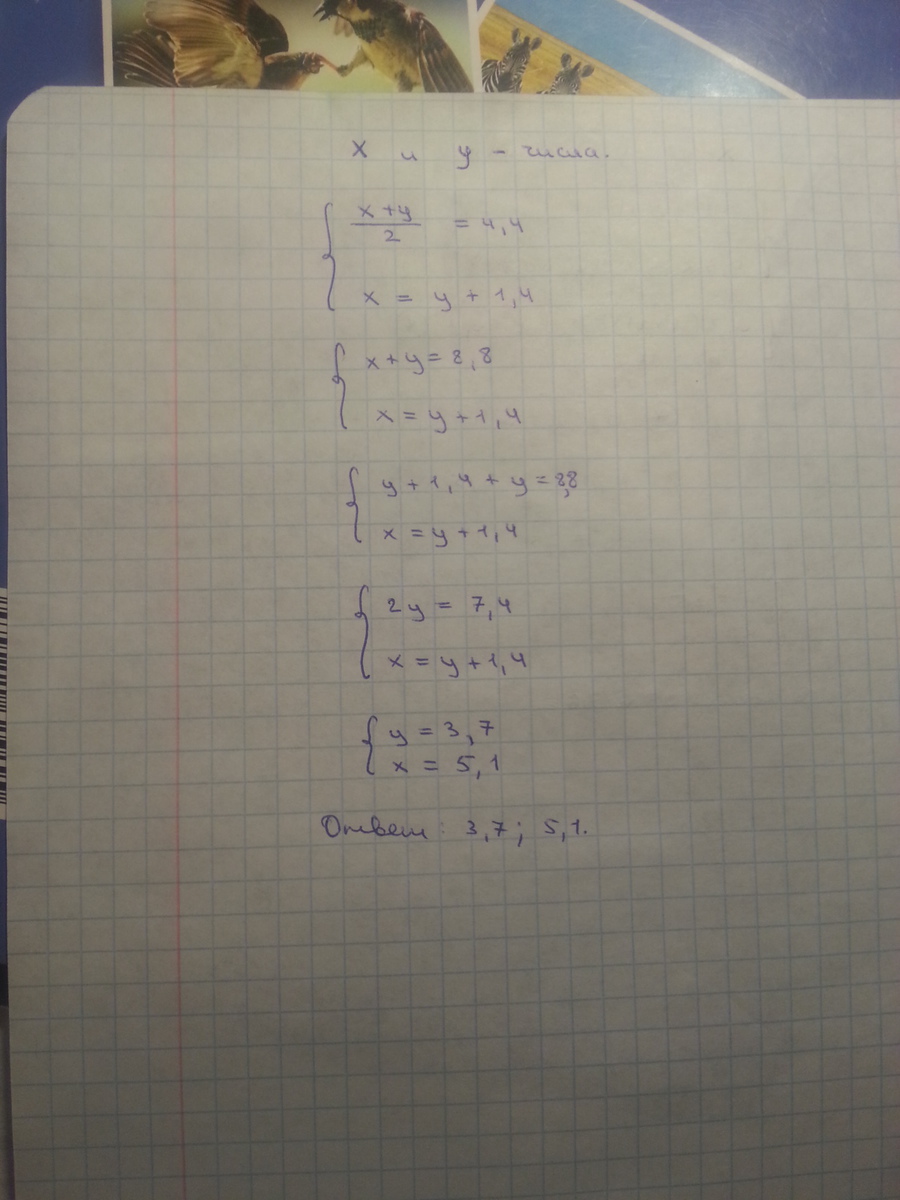 x и y - числа.
x+y
2
= 4,4
x = y + 1,4
x+y = 8,8
x = y + 1,4
y + 1,4 + y = 8,8
x = y + 1,4
2y = 7,4
x = y + 1,4
y = 3,7
x = 5,1
Ответ: 3,7; 5,1.